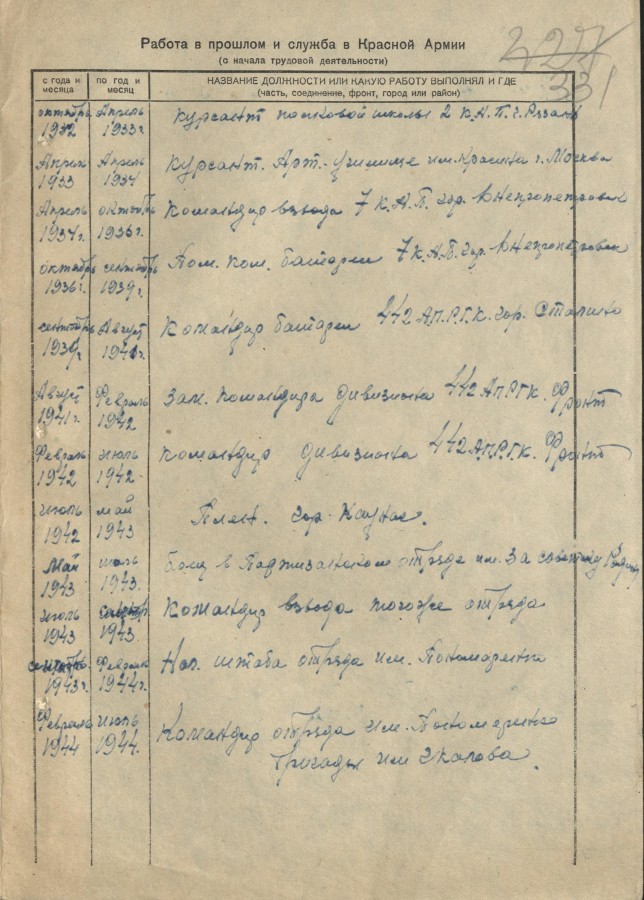 227
331
Работа в прошлом и служба в Красной Армии
(с начала трудовой деятельности)
с года и месяца по год и месяц НАЗВАНИЕ ДОЛЖНОСТИ ИЛИ КАКУЮ РАБОТУ ВЫПОЛНЯЛ И ГДЕ
(часть, соединение, фронт, город или район)
октябрь 1932 Апрель 1933г. Курсант полковой школы 2 К.А.П. г. Рязань
Апрель 1933 Апрель 1934 Курсант. Арт.-училище им. Красина г. Москва
Апрель 1934г. октябрь 1936г. Командир взвода 7 К.А.П. гор. Днепропетровск
октябрь 1936г. сентябрь 1939г. Пом. ком. батареи 7 К.А.П. гор. Днепропетровск
сентябрь 1939г. Август 1941г. Командир батареи 442 А.П.Р.Г.К. гор. Сталино
Август 1941г. Февраль 1942 Зам. командира дивизиона 442 АПРГК. Фронт
Февраль 1942 июль 1942. Командир дивизиона 442 А.П.Р.Г.К. Фронт
июль 1942 май 1943 Плен. гор. Каунас.
Май 1943 июль 1943. боец в Парт­изанском отряде им. За советскую Родину
июль 1943 сентбр. 1943. Командир взвода тогоже отряда
сентябр. 1943г. Февраль 1944г. Нач. штаба отряда им. Пономаренко
Февраль 1944 июль 1944. Командир отряда им. Пономаренко
бригады им Чкалова.